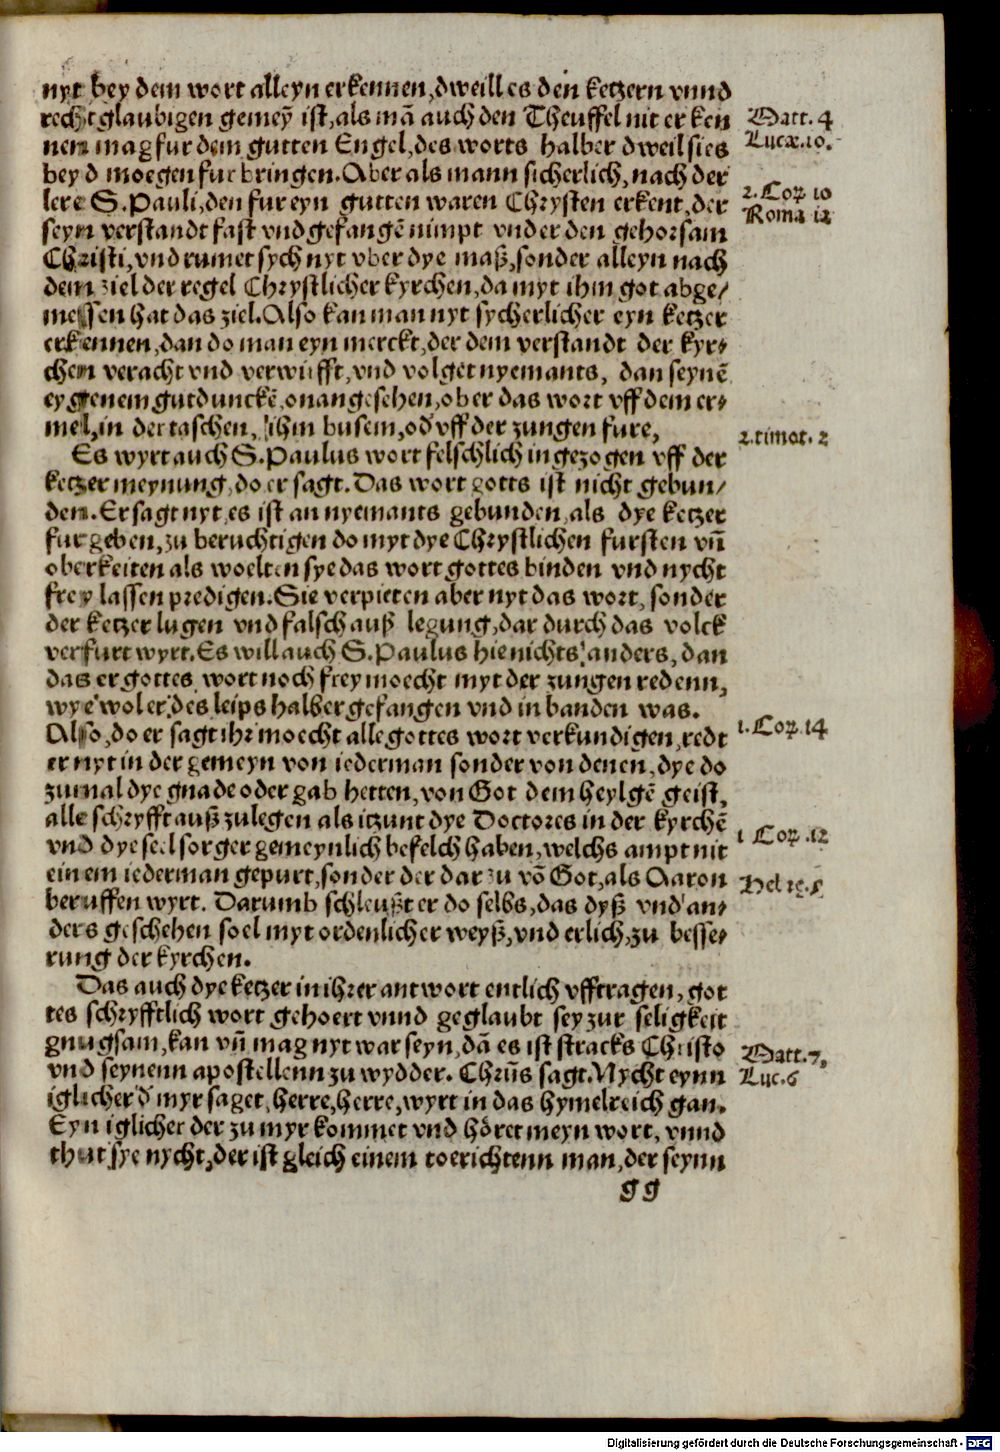 nyt bey dem wort alleyn erkennen, dweill es den ketzern vnnd
recht glaubigen gemeÿ ist, als mā auch den Theuffel nit erken
nen mag fur dem gutten Engel, des worts halber dweil sies
beyd moegen furbringen. Aber als mann sicherlich, nach der
lere S. Pauli, den fur eyn gutten waren Chrysten erkent, der
seyn verstandt fast vnd gefangē nimpt vnder den gehorsam
Christi, vnd rumet sych nyt vber dye maß, sonder alleyn nach
dem ziel der regel Chrystlicher kyrchen, da myt ihm got abge/
messen hat das ziel. Also kan man nyt sycherlicher eyn ketzer
erkennen, dan do man eyn merckt, der dem verstandt der kyr/
chen veracht vnd verwüfft, vnd volget nyemants, dan seynē
eygenem gutdunckē, onangesehen, ober das wort vff dem er/
mel, in der taschen, ihm busem, od vff der zungen fure,
Es wyrt auch S. Paulus wort felschlich ingezogen vff der
ketzer meynung, do er sagt. Das wort gotts ist nicht gebun/
den. Er sagt nyt, es ist an nyemants gebunden, als dye ketzer
furgeben, zu beruchtigen do myt dye Chrystlichen fursten vñ
oberkeiten als woelten sye das wort gottes binden vnd nycht
frey lassen predigen. Sie verpieten aber nyt das wort, sonder
der ketzer lugen vnd falsch auß legung, dar durch das volck
verfurt wyrt. Es will auch S. Paulus hie nichts anders, dan
das er gottes wort noch frey moecht myt der zungen redenn,
wye wol er des leips halber gefangen vnd in banden was.
Also, do er sagt ihr moecht alle gottes wort verkundigen, redt
er nyt in der gemeyn von iederman sonder von denen, dye do
zumal dye gnade oder gab hetten, von Got dem heylgē geist,
alle schryfft auß zulegen als itzunt dye Doctores in der kyrchē
vnd dye seelsorger gemeynlich befelch haben, welchs ampt nit
einem iederman gepurt, sonder der dar zu vō Got, als Aaron
beruffen wyrt. Darumb schleußt er do selbs, das dyß vnd an/
ders geschehen soel myt ordenlicher weyß, vnd erlich, zu besse/
rung der kyrchen.
Das auch dye ketzer in ihrer antwort entlich vfftragen, got
tes schryfftlich wort gehoert vnnd geglaubt sey zur seligkeit
gnugsam, kan vñ mag nyt war seyn, dā es ist stracks Christo
vnd seynenn apostellenn zu wydder. Chrūs sagt. Nycht eynn
iglicher d myr saget, herre, herre, wyrt in das hymelreich gan.
Eyn iglicher der zu myr kommet vnd höret meyn wort, vnnd
thut sye nycht, der ist gleich einem toerichtenn man, der seynn
gg
Matt. 4
Lucæ. 10.
2. Cor 10
Roma 12
2. timot. 2
1. Cor 14
1 Cor. 12
Hebre. 5
Matt. 7,
Luc. 6
Digitalisierung gefördert durch die Deutsche Forschungsgemeinschaft - DFG